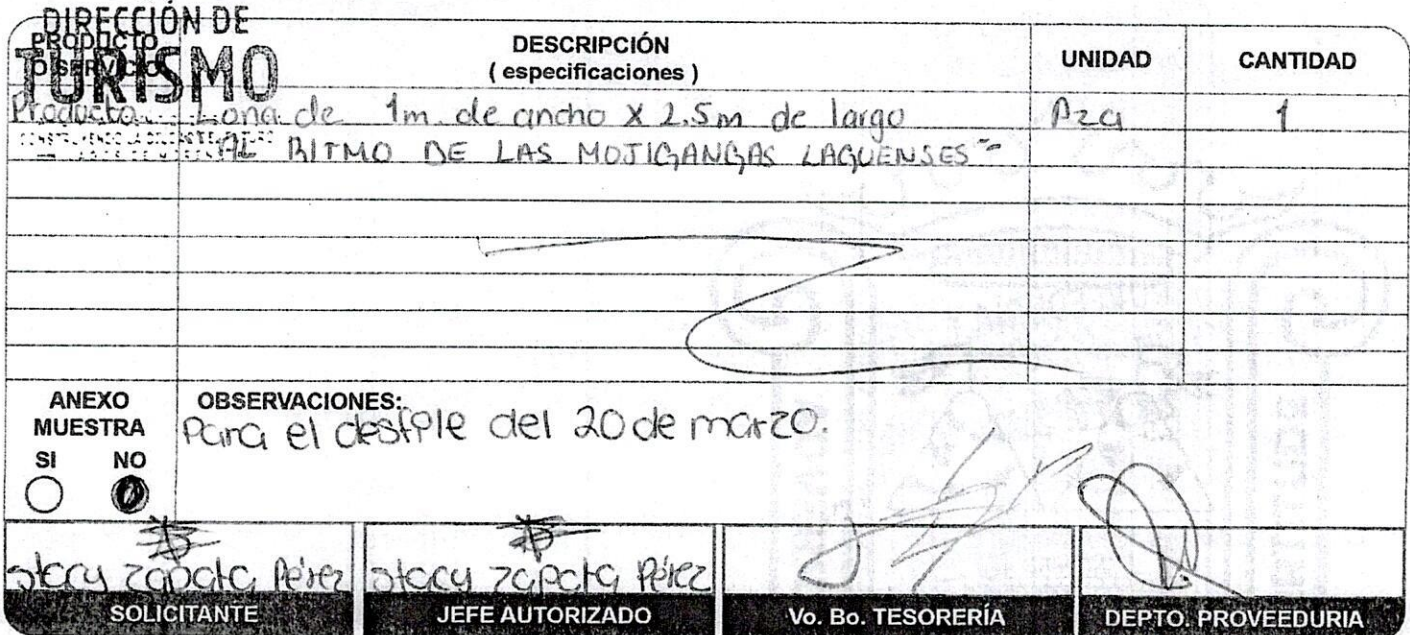 DIRECCIÓN DE
TURISMO
PRODUCTO
O SERVICIO
DESCRIPCIÓN
( especificaciones )
UNIDAD
CANTIDAD
Producto Lona de 1m de ancho X 2.5m de largo Pza 1
AL RITMO DE LAS MOJIGANGAS LAGUENSES"
ANEXO
MUESTRA
SI NO
OBSERVACIONES:
Para el desfile del 20 de marzo.
Stacy Zapata Pérez
SOLICITANTE
Stacy Zapata Pérez
JEFE AUTORIZADO
Vo. Bo. TESORERÍA
DEPTO. PROVEEDURIA